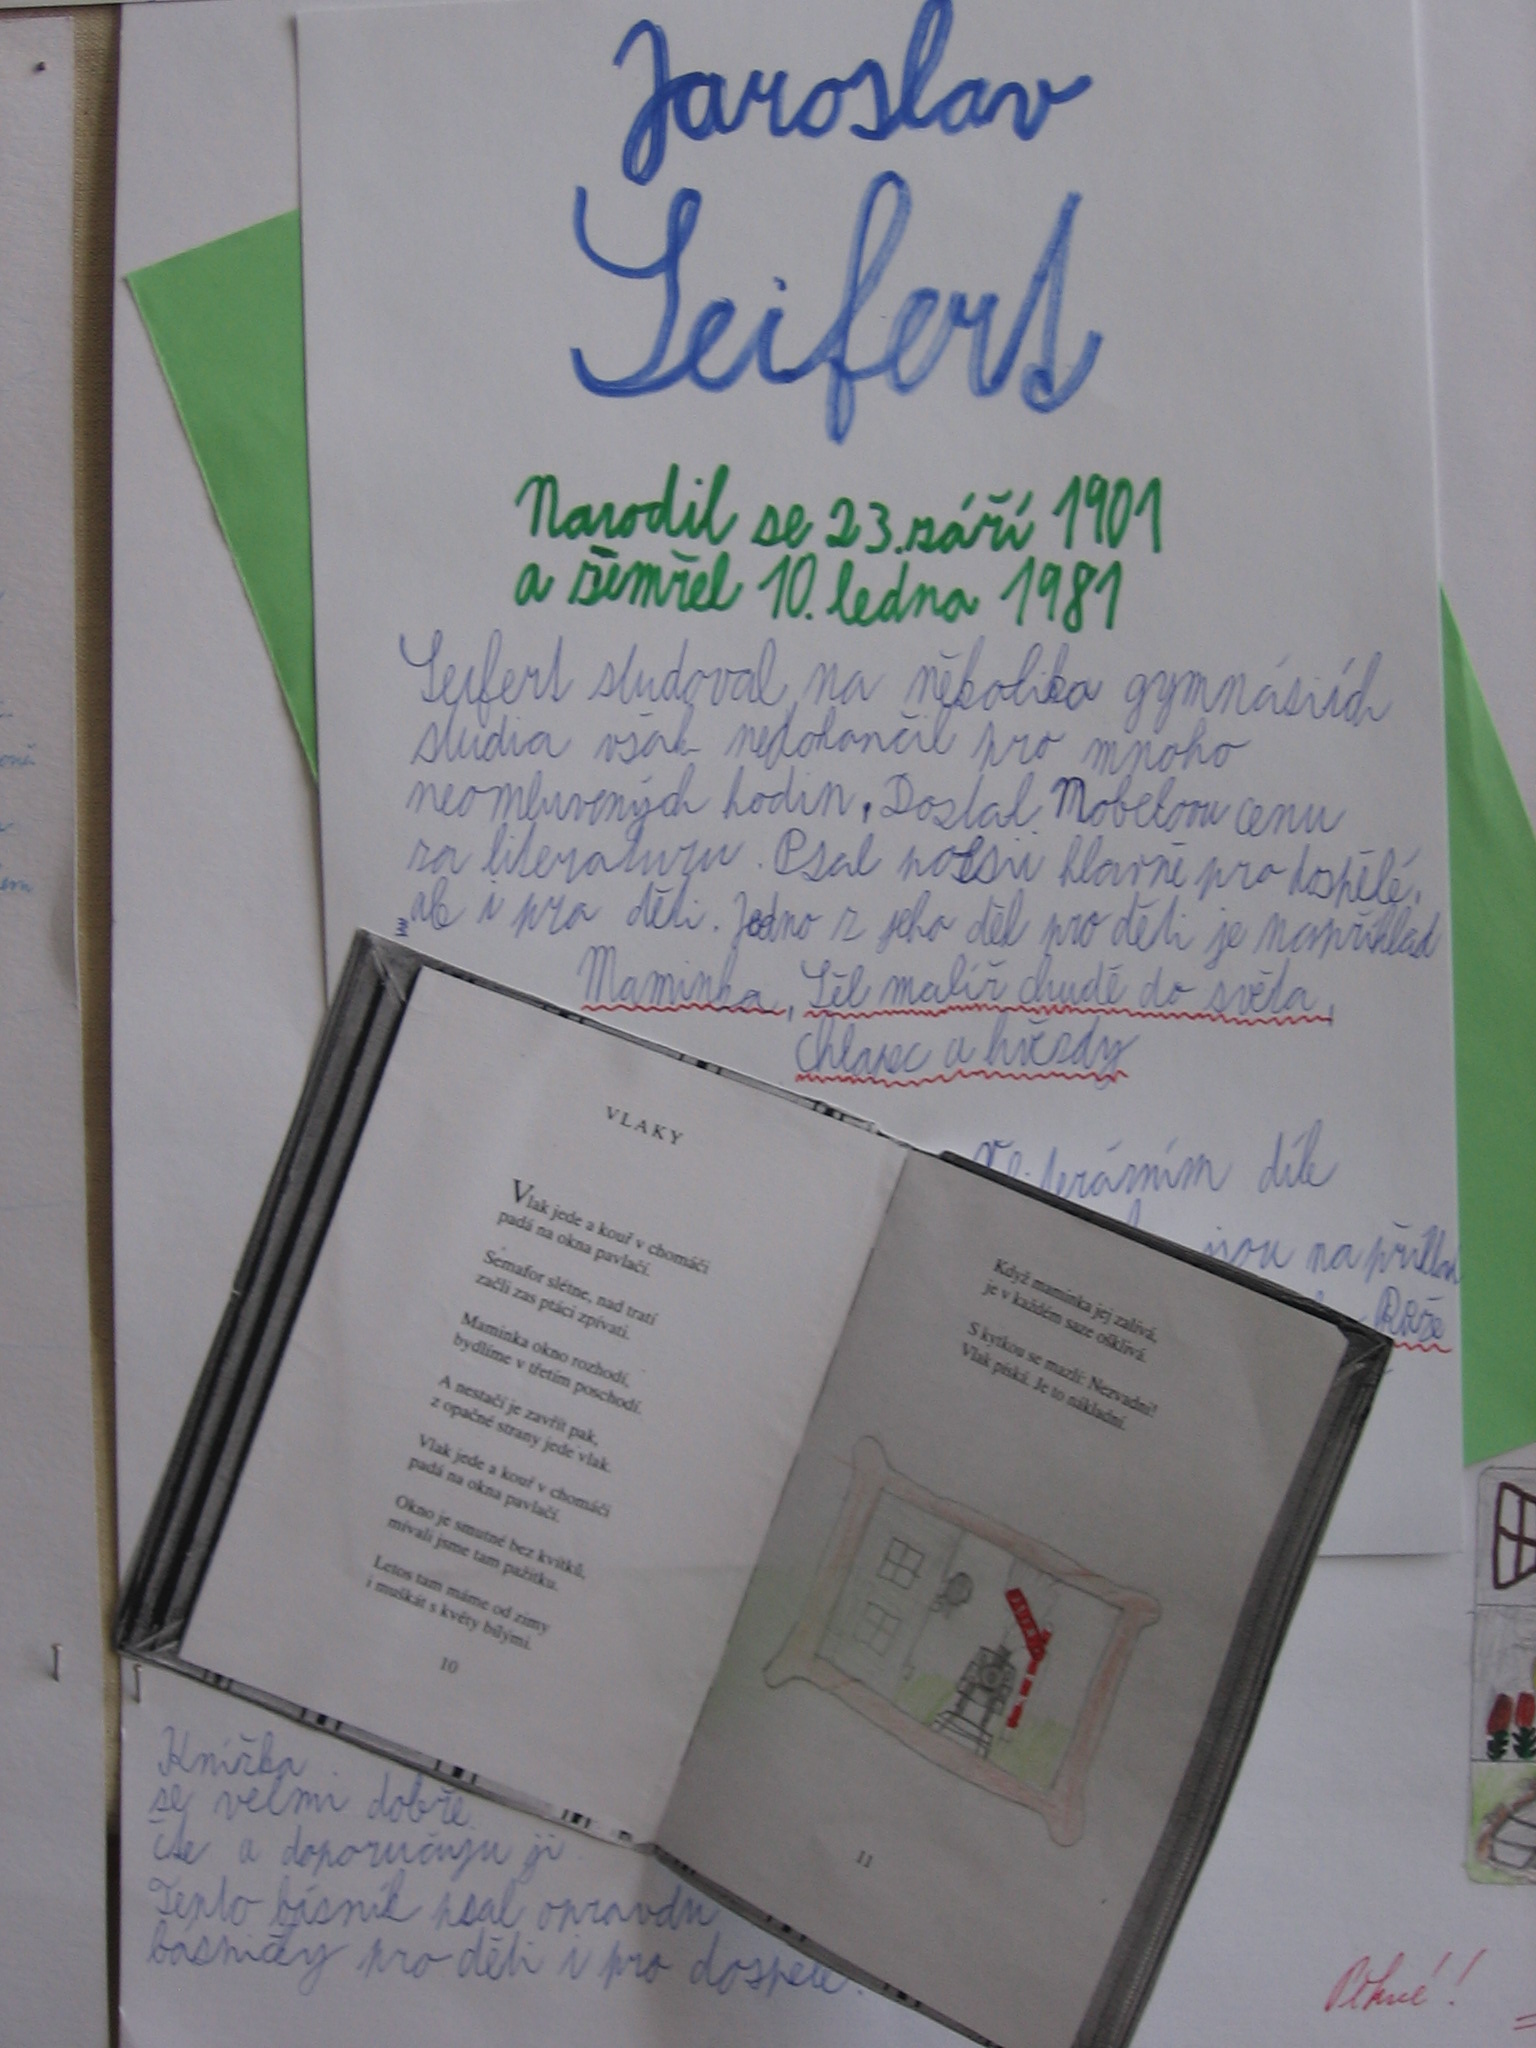 Jaroslav
Seifert
Narodil se 23. září 1901
a zemřel 10. ledna 1981
Seifert studoval na několika gymnásiích
studia však nedokončil pro mnoho
neomluvených hodin. Dostal Nobelovu cenu
za literaturu. Psal poesii hlavně pro dospělé,
ale i pro děti. Jedno z jeho děl pro děti je například
Maminka, Šel malíř chudě do světa,
Chlapec a hvězdy
díle
jsou na příklad
Růže
VLAKY
Vlak jede a kouř v chomáči
padá na okna pavlačí.
Semafor slétne, nad tratí
začli zas ptáci zpívati.
Maminka okno rozhodí,
bydlíme v třetím poschodí.
A nestačí je zavřít pak,
z opačné strany jede vlak.
Vlak jede a kouř v chomáči
padá na okna pavlačí.
Okno je smutné bez kvítků,
mívali jsme tam pažitku.
Letos tam máme od zimy
i muškát s květy bílými.
10
Když maminka jej zalívá,
je v každém saze ošklivá.
S kytkou se mazlí: Nezvadni!
Vlak píská. Je to nákladní.
11
Knížka
se velmi dobře
čte a doporučuju ji
Tento básník psal opravdu
básničky pro děti i pro dospělé.
Pěkné!